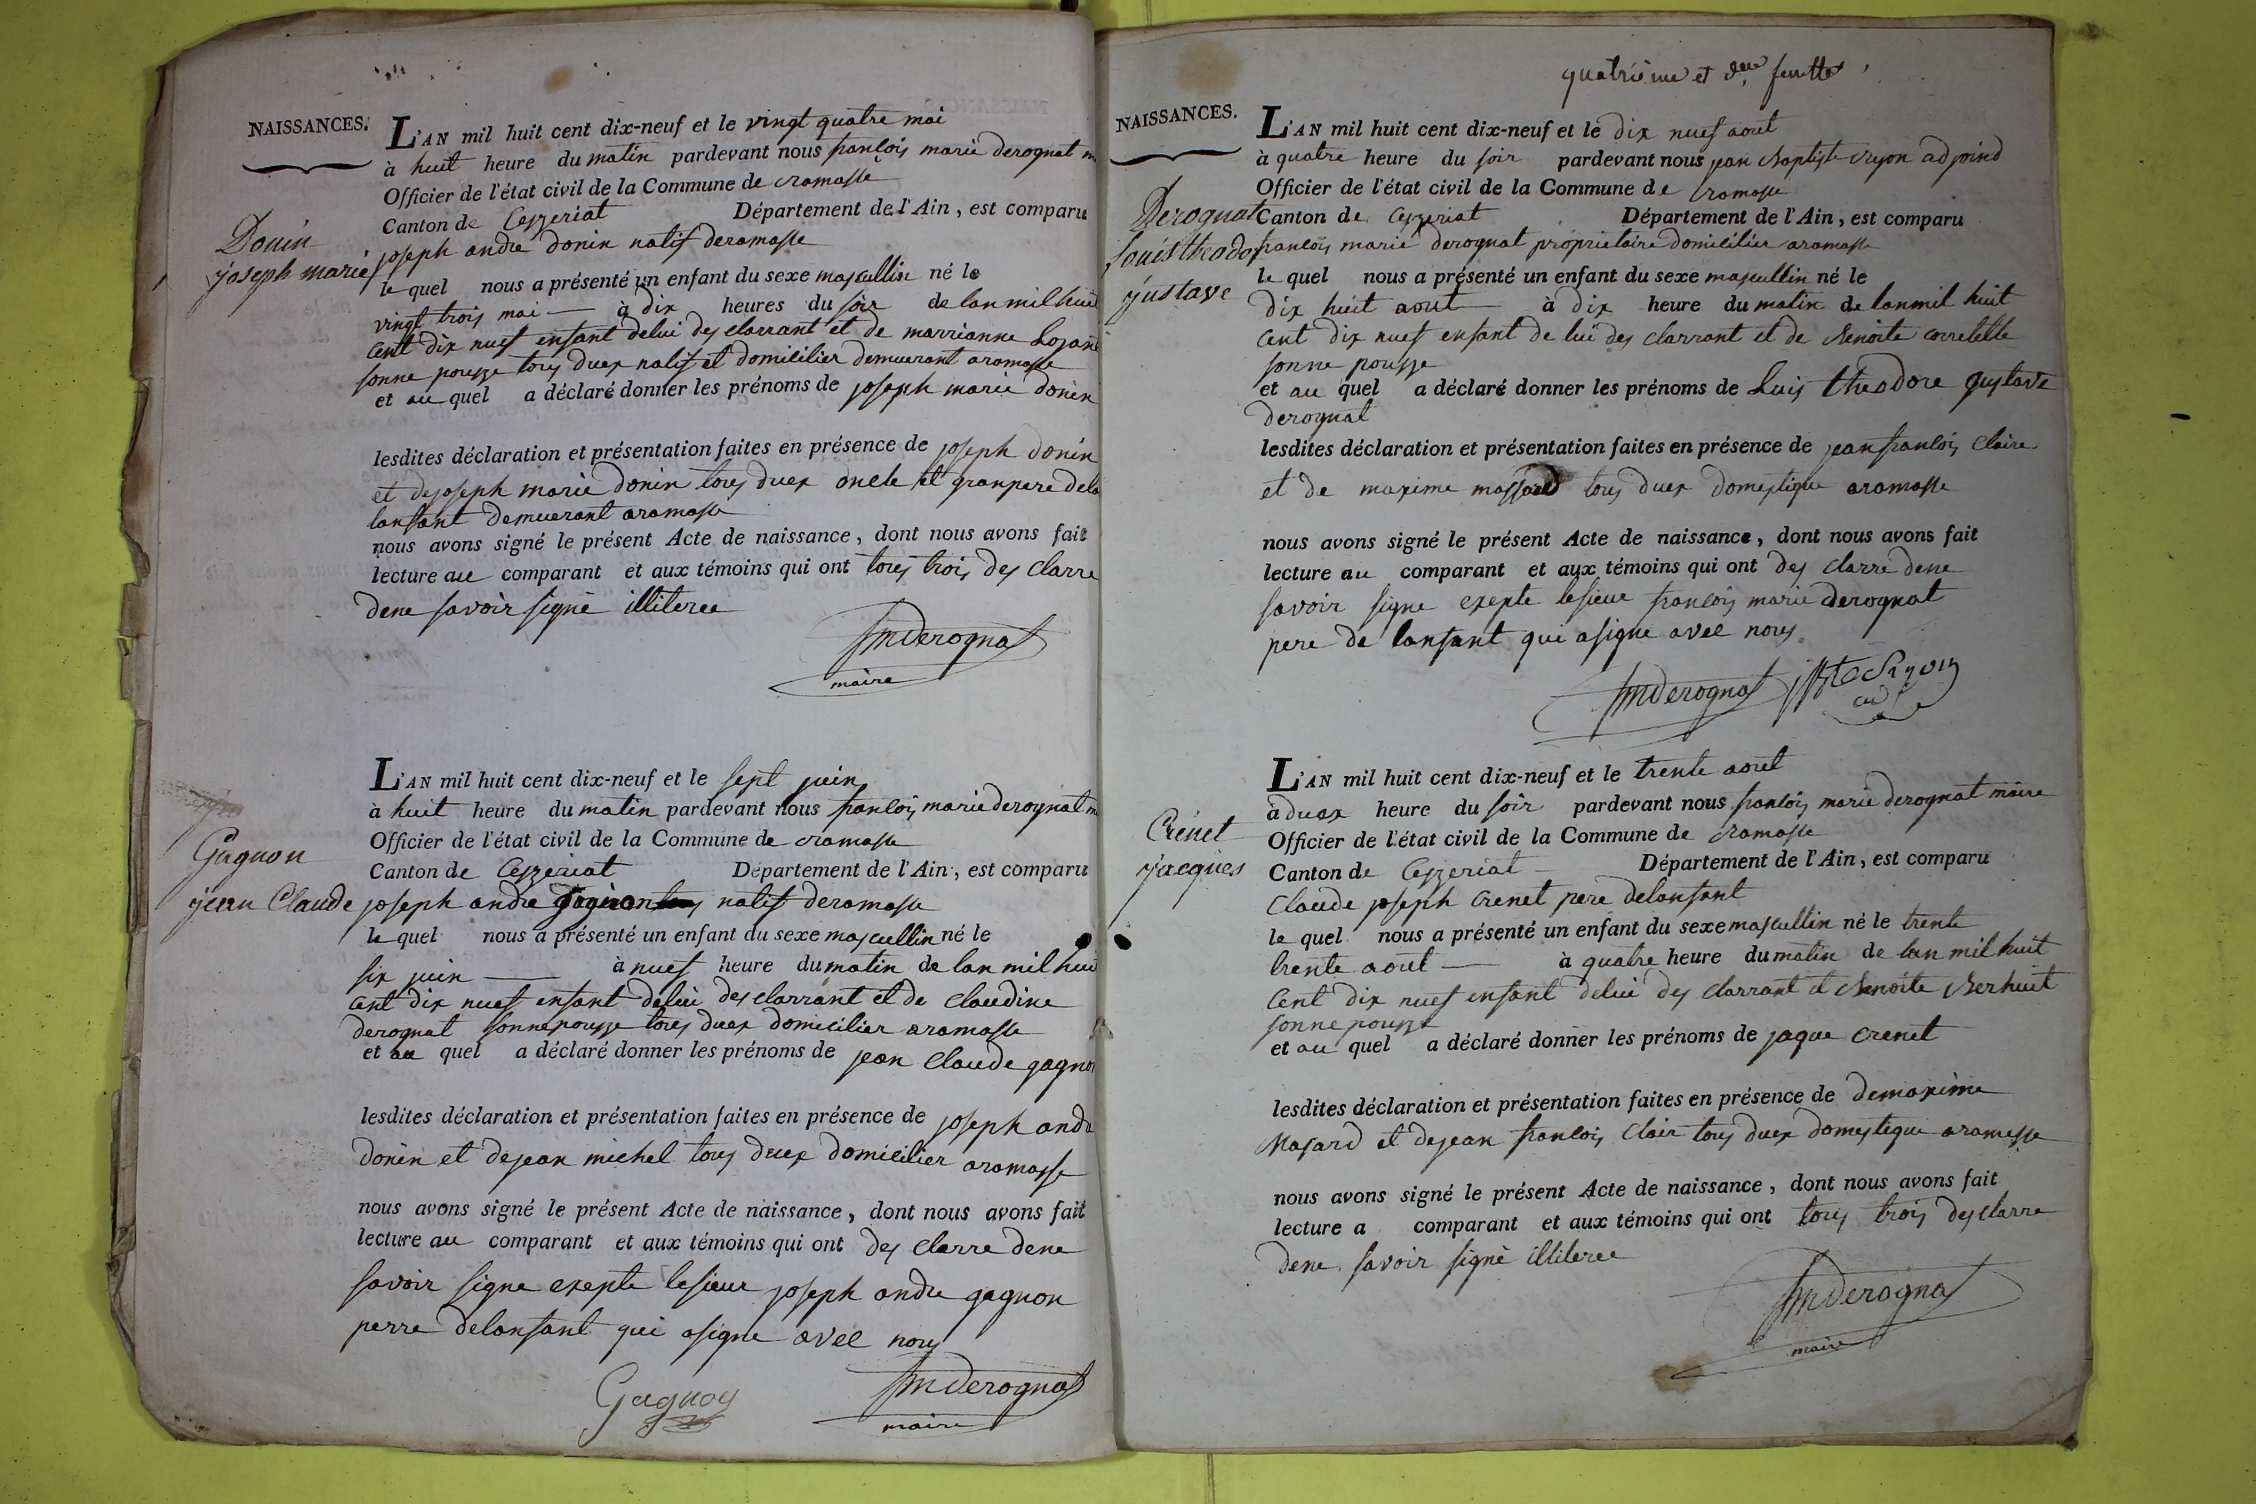 NAISSANCES.
L'AN mil huit cent dix-neuf et le vingt quatre mai
à huit heure du matin pardevant nous françois marie derognat
Officier de l'état civil de la Commune de cramasse
Canton de Ceyzeriat Département de l'Ain, est comparu
Donin
joseph marie
joseph andre donin natif deramasse
le quel nous a présenté un enfant du sexe mascullin né le
vingt trois mai — à dix heures du soir de lan mil huit
cent dix nuef enfant delui des clarrant et de marrianne
sonne pousse tous duex natif et domicilier demuerant aramasse
et au quel a déclaré donner les prénoms de joseph marie donin
lesdites déclaration et présentation faites en présence de joseph donin
et dejoseph marie donin tous duex oncle et granpere dela
lanfant demuerant aramasse
nous avons signé le présent Acte de naissance, dont nous avons fait
lecture au comparant et aux témoins qui ont tous trois des clarre
dene savoir signé illiteree
fmderognat
maire
L'AN mil huit cent dix-neuf et le sept juin
à huit heure du matin pardevant nous françois marie derognat
Officier de l'état civil de la Commune de cramasse
Canton de Ceyzeriat Département de l'Ain, est comparu
Gagnon
jean Claude
joseph andre gagnon natif deramasse
le quel nous a présenté un enfant du sexe mascullin né le
six juin — à nuef heure du matin de lan mil huit
cent dix nuef enfant delui des clarrant et de claudine
derognat sonnepousse tous duex domicilier aramasse
et au quel a déclaré donner les prénoms de jean claude gagnon
lesdites déclaration et présentation faites en présence de joseph andre
donin et dejean michel tous duex domicilier aramasse
nous avons signé le présent Acte de naissance, dont nous avons fait
lecture au comparant et aux témoins qui ont des clarre dene
savoir signe exepte lesieur joseph andre gagnon
perre delanfant qui asigne avec nous
Gagnon fmderognat
maire
quatrième et dere feuille
NAISSANCES.
L'AN mil huit cent dix-neuf et le dix nuef aout
à quatre heure du soir pardevant nous jean Baptiste adjoind
Officier de l'état civil de la Commune de cramasse
Canton de Ceyzeriat Département de l'Ain, est comparu
Derognat
Louis theodor
gustave
francois marie derognat proprietaire domicilier aramasse
le quel nous a présenté un enfant du sexe mascullin né le
dix huit aout — à dix heure du matin de lan mil huit
cent dix nuef enfant de lui des clarrant et de Benoite
sonne pousse
et au quel a déclaré donner les prénoms de Luis theodore gustave
derognat
lesdites déclaration et présentation faites en présence de jean francois claire
et de maxime massard tous duex domestique aramasse
nous avons signé le présent Acte de naissance, dont nous avons fait
lecture au comparant et aux témoins qui ont des clarre dene
savoir signe exepte lesieur francois marie derognat
pere de lanfant qui asigne avec nous
fmderognat
L'AN mil huit cent dix-neuf et le trente aout
à duex heure du soir pardevant nous francois marie derognat maire
Officier de l'état civil de la Commune de cramasse
Canton de Ceyzeriat — Département de l'Ain, est comparu
Crénet
jacques
Claude joseph crenet pere delanfant
le quel nous a présenté un enfant du sexe mascullin né le trente
trente aout — à quatre heure du matin de lan mil huit
cent dix nuef enfant delui des clarrant et Benoite Berhuit
sonne pousse
et au quel a déclaré donner les prénoms de jaque crenet
lesdites déclaration et présentation faites en présence de demaxime
Masard et dejean francois clair tous duex domestique aramasse
nous avons signé le présent Acte de naissance, dont nous avons fait
lecture a comparant et aux témoins qui ont tous trois des clarre
dene savoir signé illiteree
fmderognat
maire